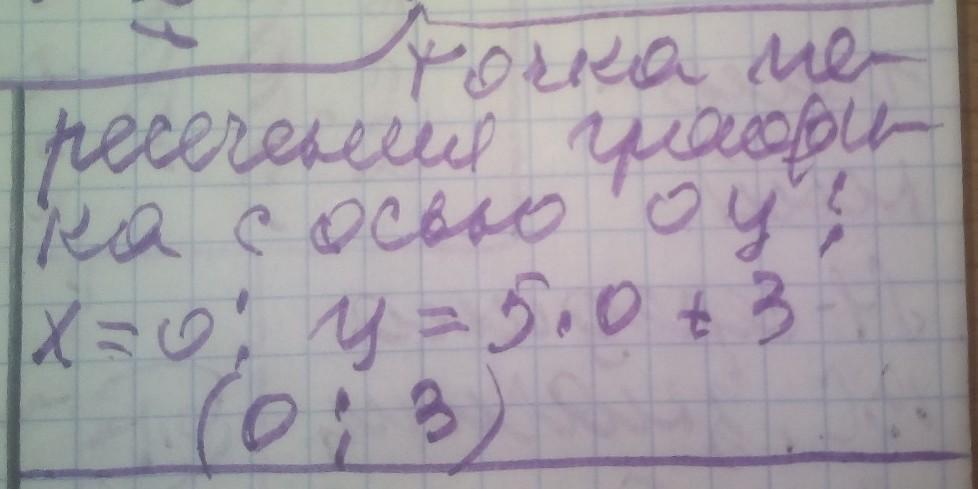 точка пе-
ресечения графи-
ка с осью оу;
x=0; y=5·0+3
(0; 3)